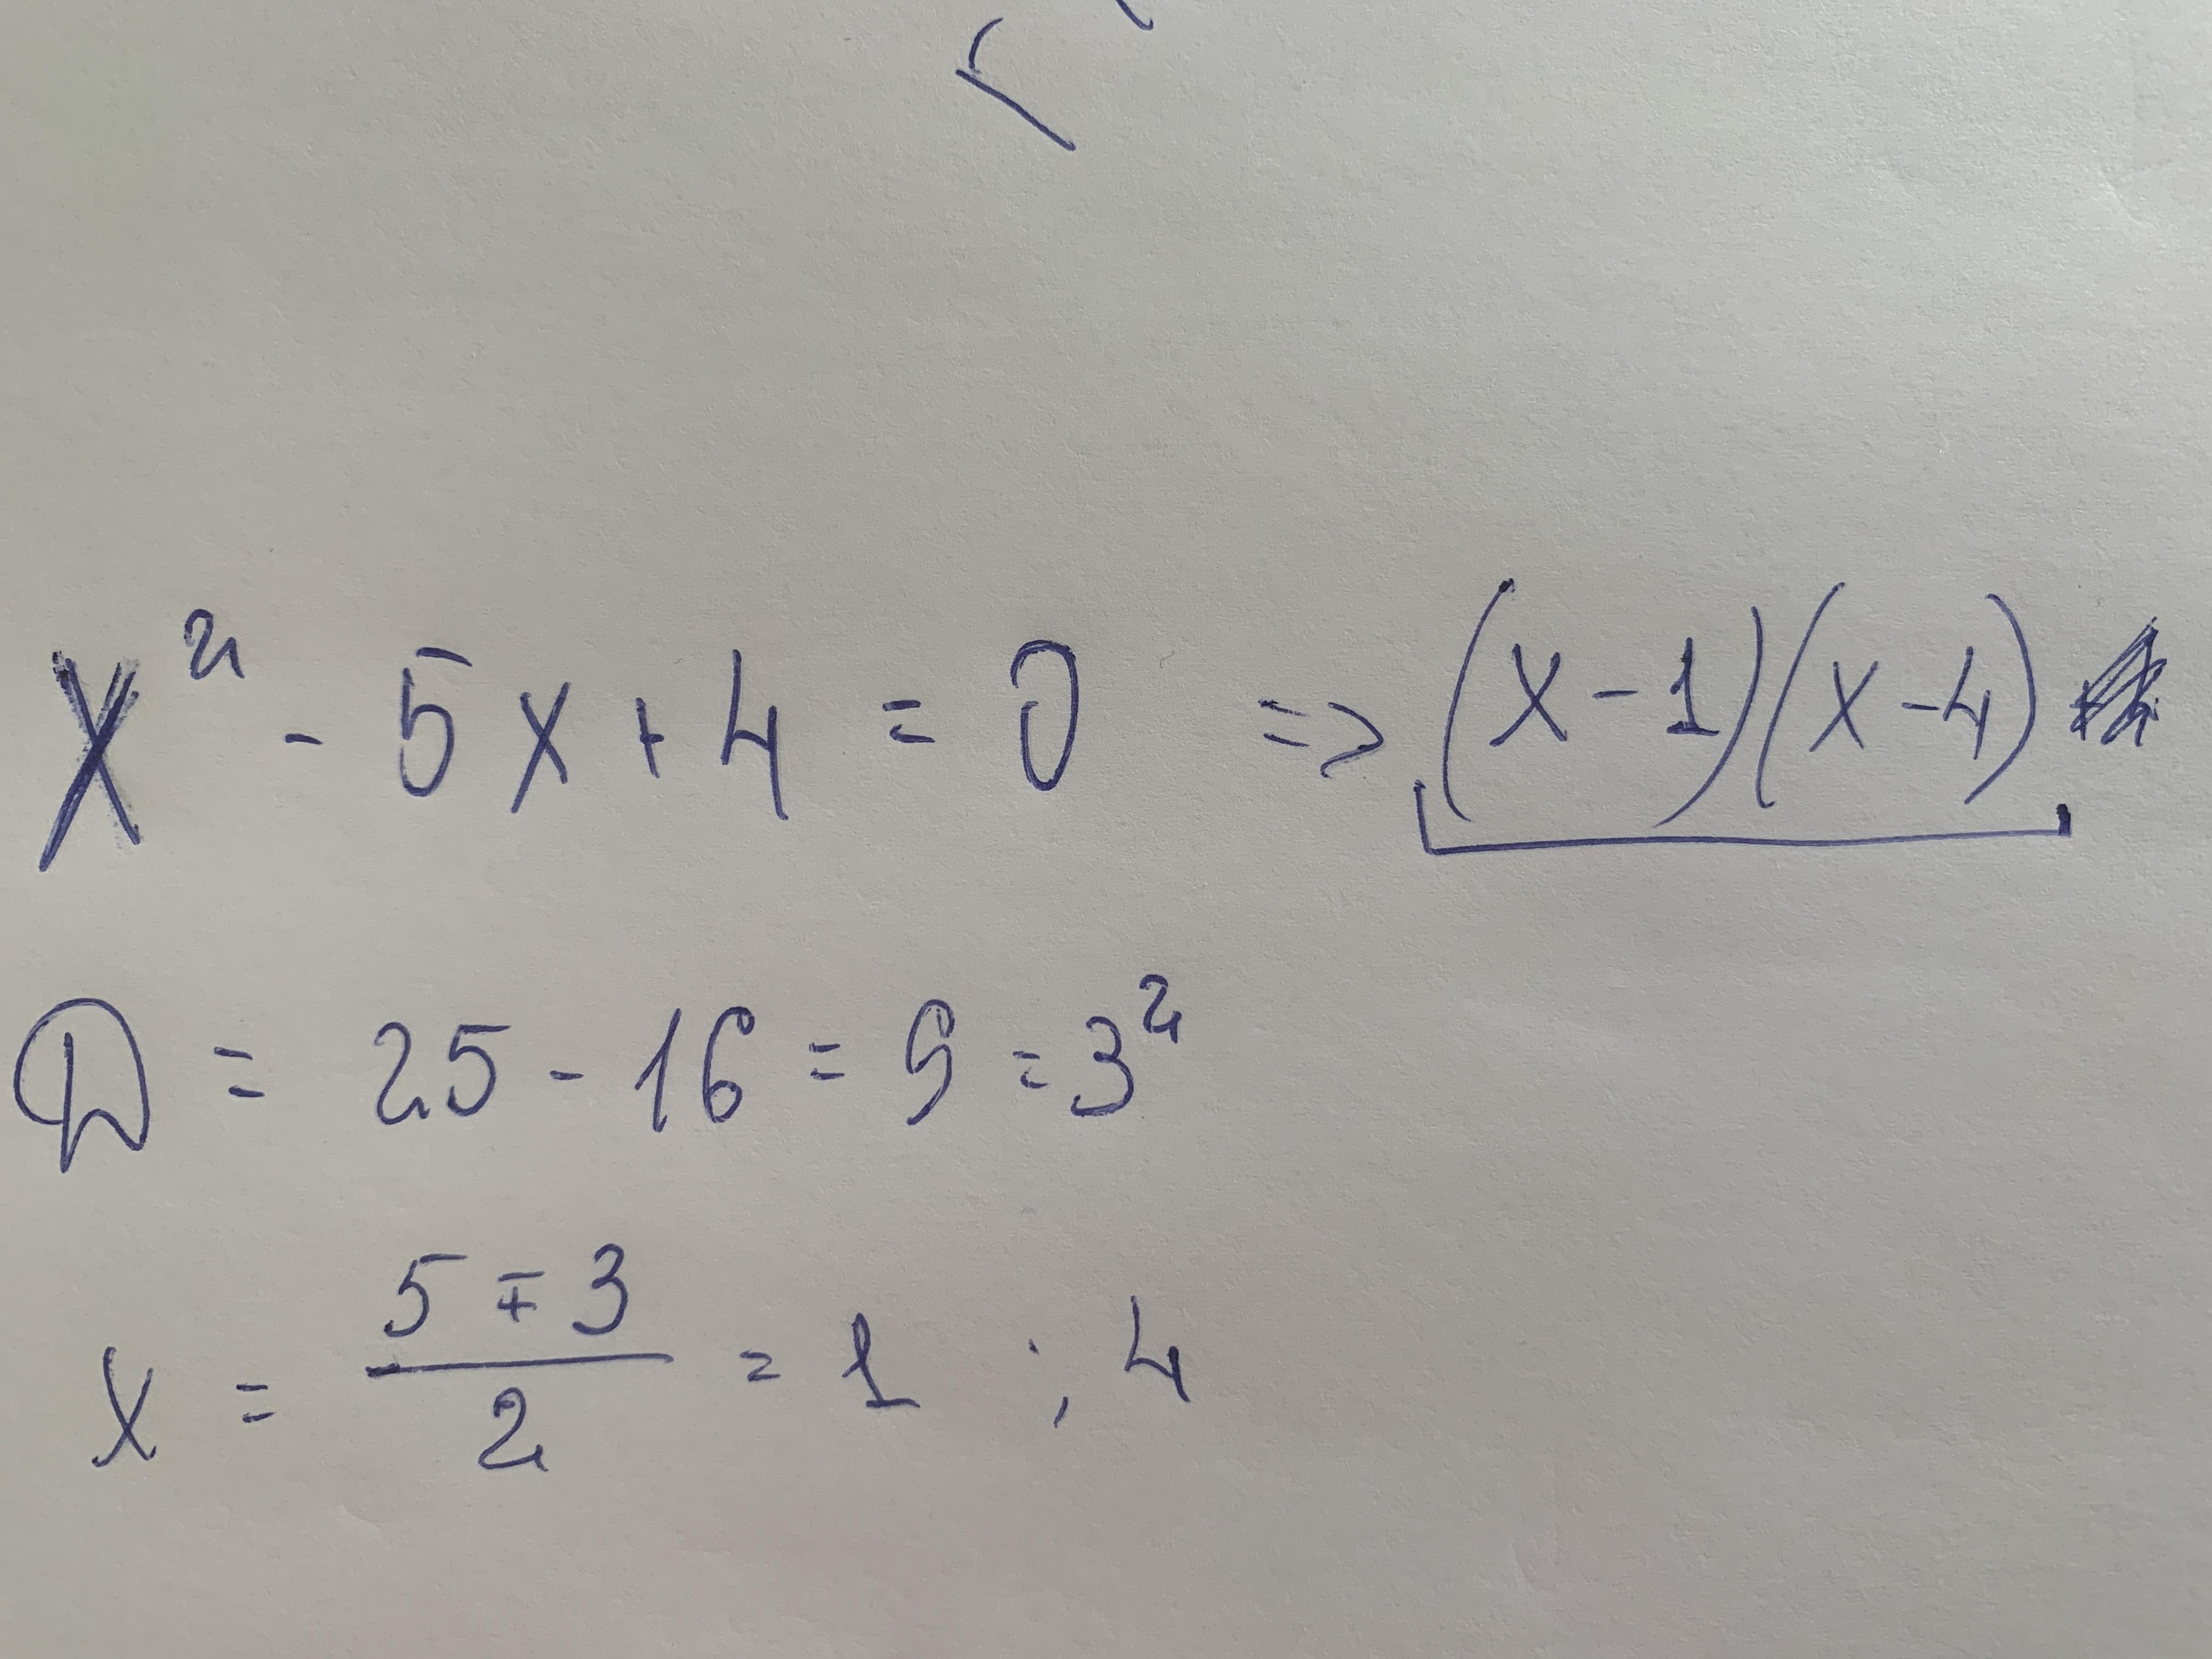 x² - 5x + 4 = 0 => (x - 1)(x - 4)
D = 25 - 16 = 9 = 3²
x = (5 ∓ 3)/2 = 1 ; 4